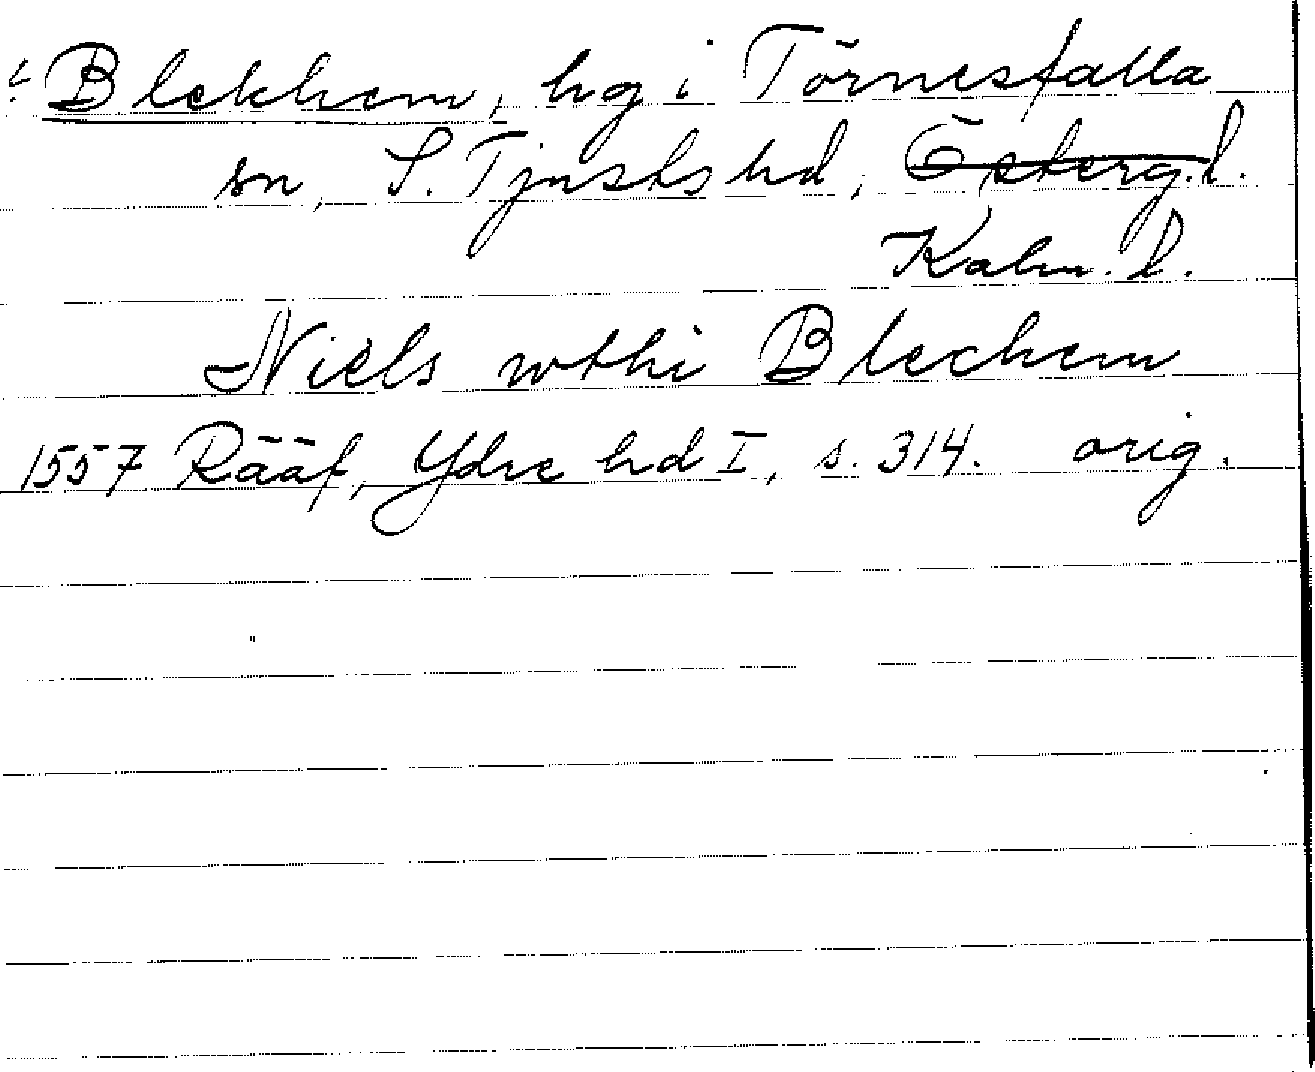 Blekhem, hg i Törnesfalla
sn, S. Tjusts hd, Österg. l.
Kalm. l.
Niels wthi Blechem
1557 Rääf, Ydre hd I, s. 314. orig.